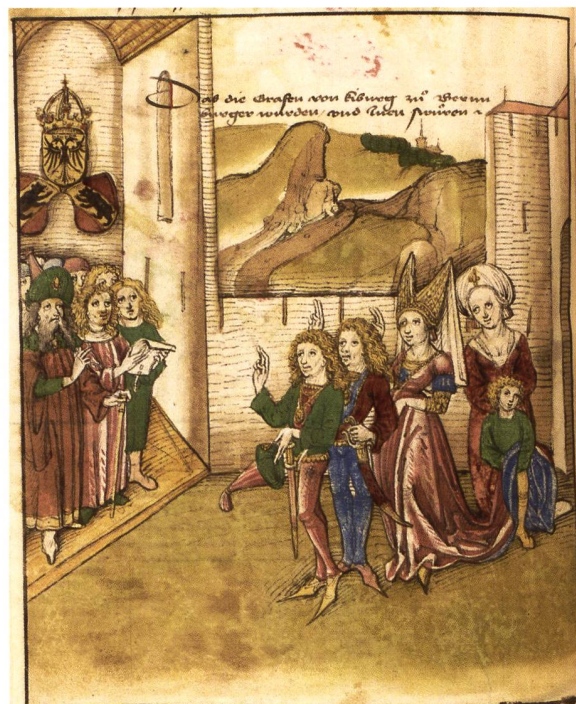 Das die Grafen von Kiburg zů Bernn
burger wurden und Inen swůren